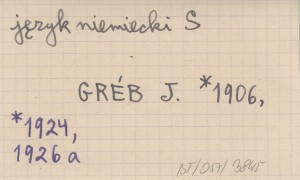 język niemiecki S
GRÉB J. *1906,
*1924,
1926 a
BT/057/3845